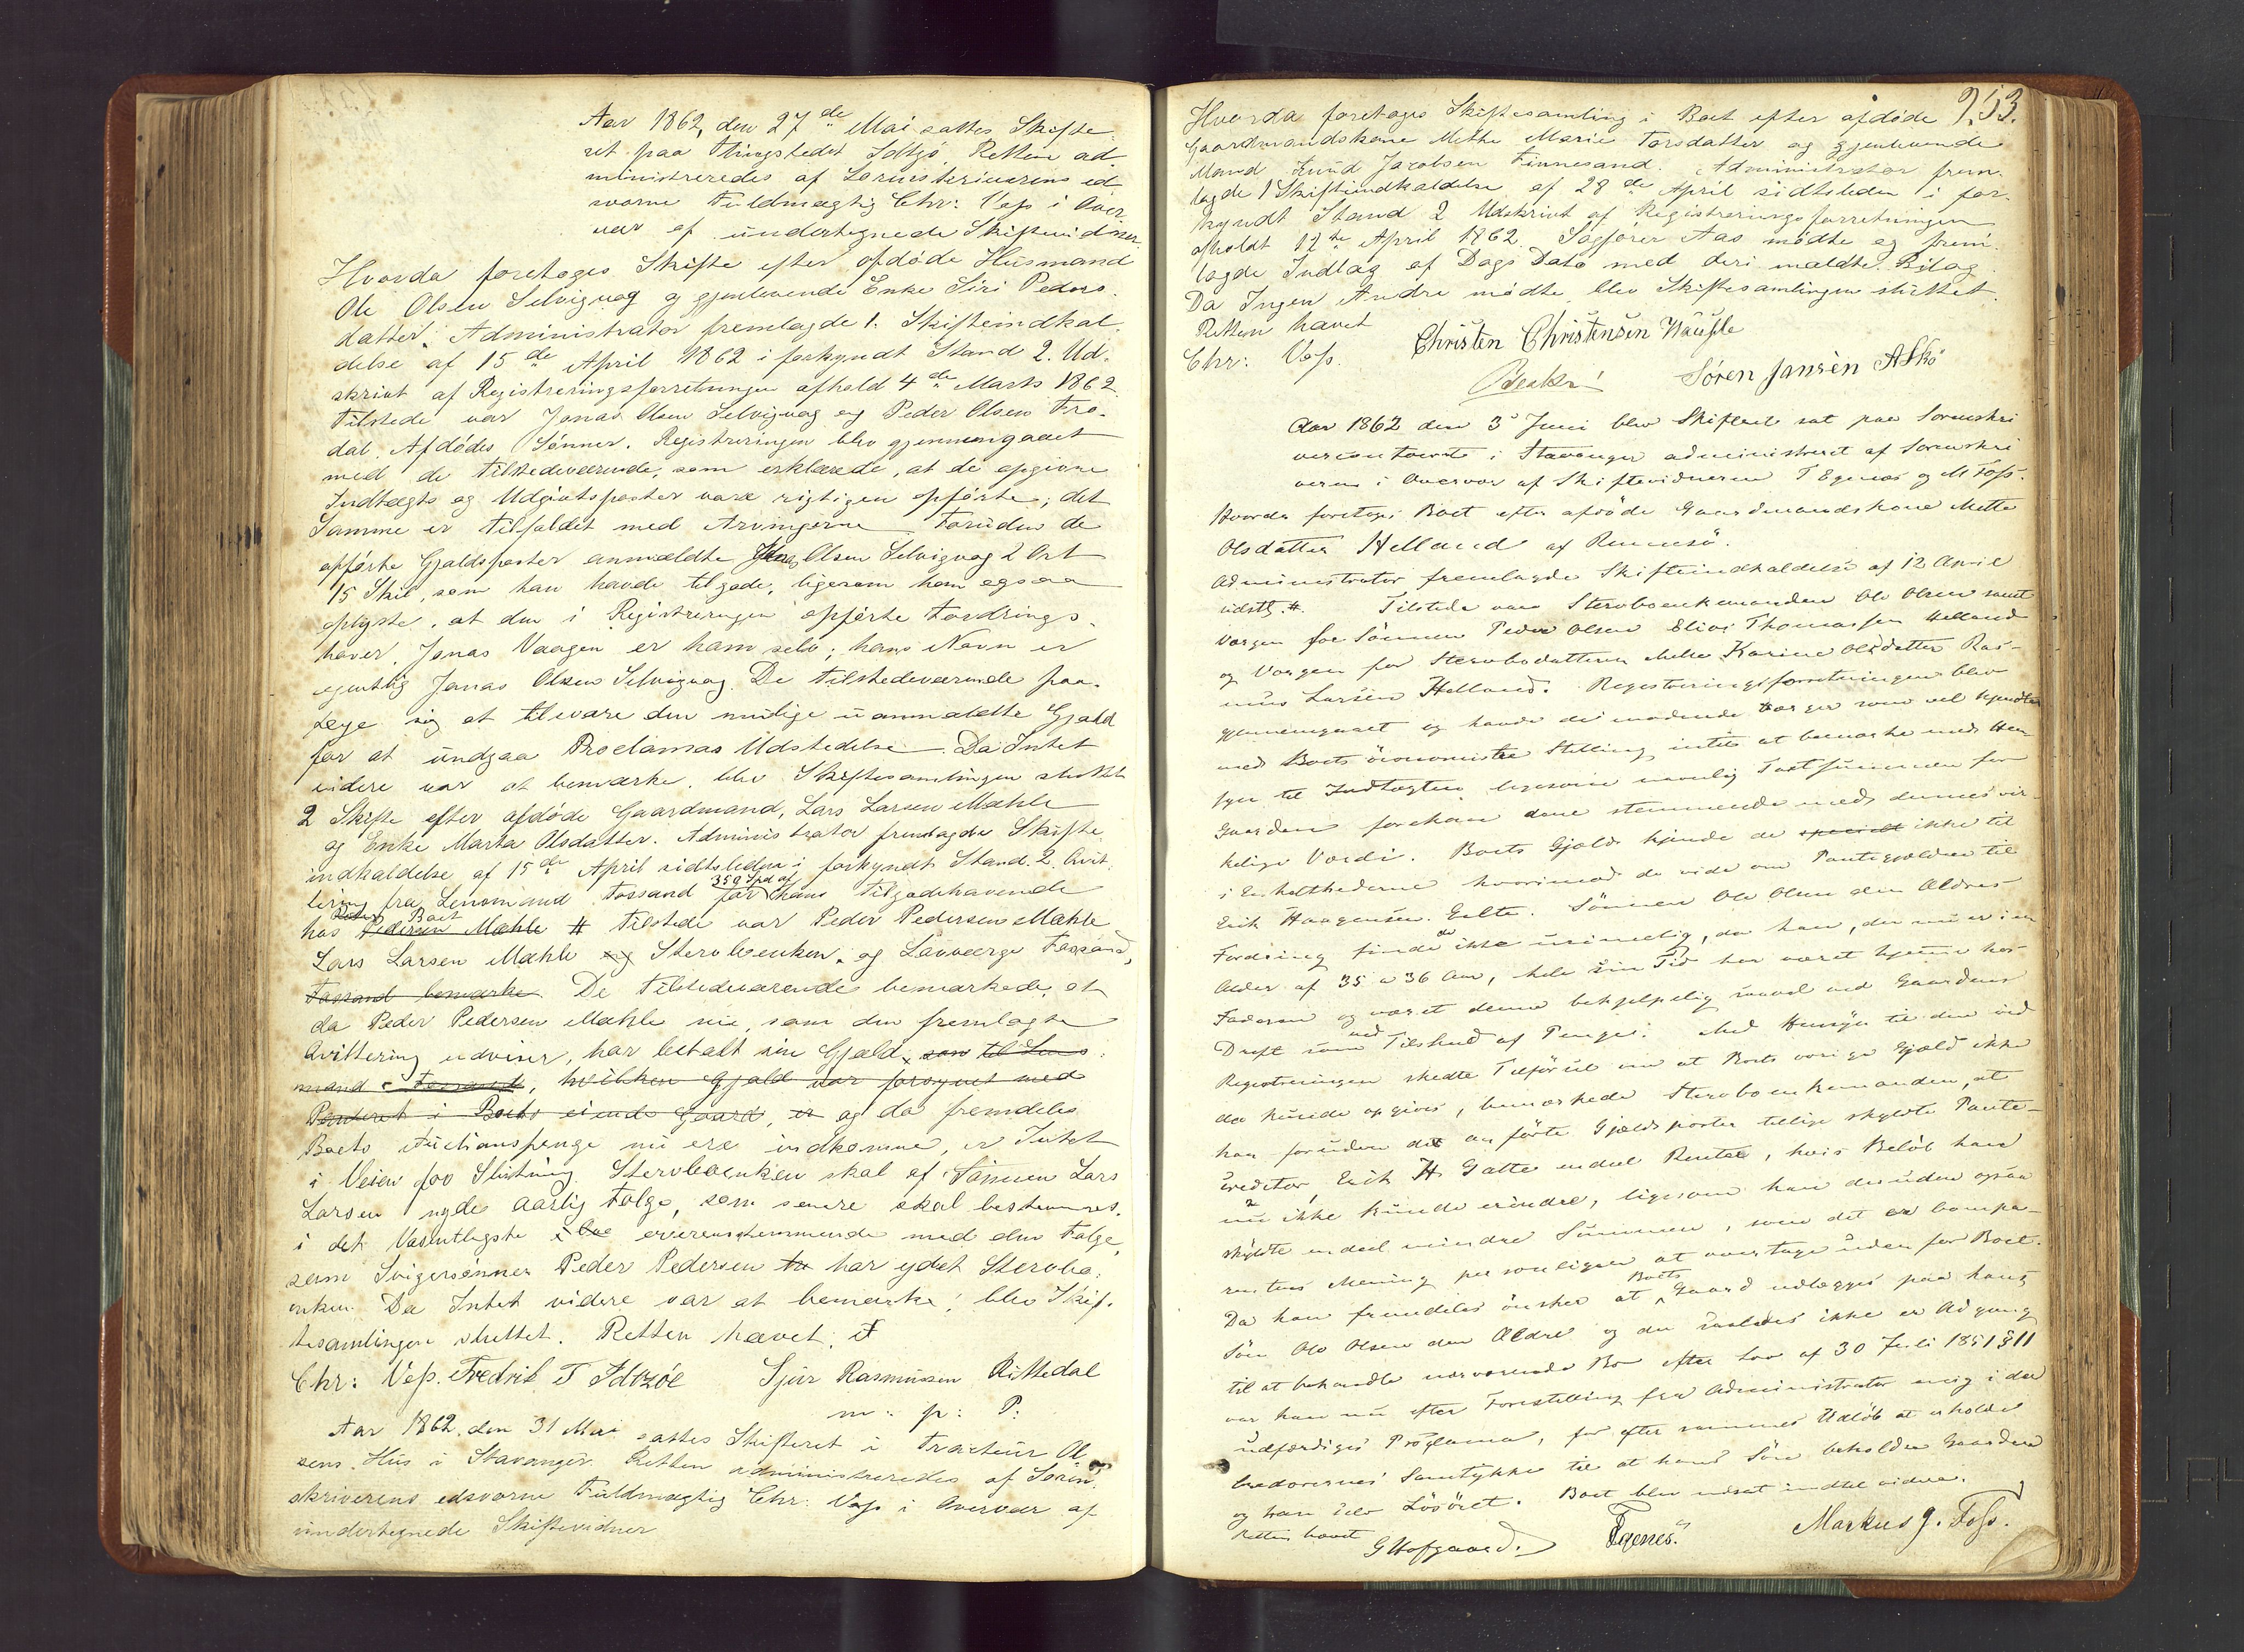 Aar 1862, den 27de Mai sattes Skifte
ret paa Thingstedet Idtzö. Retten ad
ministreredes af Sorenskriverens ed
svorne Fuldmægtig Chr: Vess i Over
vær af undertegnede Skiftevidner.
Hvorda foretoges Skifte efter afdöde Husmand
Ole Olsen Selvigvag og gjenlevende Enke Siri Peders
datter. Administrator fremlagde 1. Skifteindkal
delse af 15de April 1862 i forkyndt Stand 2. Ud
skrivt af Registreringsforretningen afhold 4de Marts 1862
Tilstede var Jonas Olsen Selvigvag og Peder Olsen Fro
dal. Afdödes Sönner. Registreringen blev gjennemgaaet
med de Tilstedeværende, som erklærede, at de opgivne
Indtægts og Udgivtsposter vare rigtigen opförte, det
Samme er Tilfældet med Arvingerne Foruden de
opförte Gjældsposter anmældte Jonas Olsen Selvigvag 2 Ort
15 Skil, som han havde tilgode, ligesom han ogsaa
oplyste, at den i Registreringen opförte Fordrings
haver, Jonas Vaagen er ham selv; hans Navn er
egentlig Jonas Olsen Selvigvag. De tilstedeværende paa
lege sig at tilsvare den mulige uanmældte Gjæld
for at undgaa Proclamas Udstedelse. Da Intet
videre var at bemærke, blev Skiftesamlingen sluttet
2 Skifte efter afdöde Gaardmand, Lars Larsen Mæhle
og Enke Marta Olsdatter. Administrator fremlagde Skifte
indkaldelse af 15de April sidtsleden i forkyndt Stand. 2. Qvit
tering fra Lensmand Fossand 359 Spd af for hans Tilgodehavende
hos Boet Pedersen Mæhle # Tilstede var Peder Pedersen Mæhle
Lars Larsen Mæhle og Stervboenken og Lavværge Fossand,
Fossand bemærke. De Tilstedeværende bemærkede, at
da Peder Pedersen Mæhle nu, som den fremlagte
Qvittering udviser, har betalt sin Gjæld, som til Lens
mand Fossand, hvilken Gjæld var forsynet med
Panteret i Boets eiende Gaard, er og da fremdeles
Boets Auctionspenge nu ere indkomne, er Intet
i Veien for Slutning. Stervboenken skal af Sönnen Lars
Larsen nyde aarlig Folge, som senere skal bestemmes.
i det Væsentligste overensstemmende med den Folge,
som Svigersönnen Peder Pedersen har ydet Stervbo
enken. Da Intet videre var at bemærke, blev Skif
tesamlingen sluttet. Retten hævet.
Chr: Vess. Fredrik T Idtzöe Sjur Rasmussen Rittedal
m: p: P:
Aar 1862, den 31 Mai sattes Skifteret i Tracteur Ol
sens Hus i Stavanger. Retten administreredes af Soren
skriverens edsvorne Fuldmægtig Chr: Vess i Overvær af
undertegnede Skiftevidner
253.
Hvorda foretoges Skiftesamling i Boet efter afdöde
Gaardmandskone Methe Marie Torsdatter og gjenlevende
Mand Knud Jacobsen Finnesand. Administrator frem
lagde 1 Skifteindkaldelse af 28de April sidtsleden i for
kyndt Stand 2 Udskrivt af Registreringsforretningen
afholdt 12te April 1862. Sagförer Aas mödte og frem
lagde Indlæg af Dags Dato med deri meldte Bilag.
Da Ingen Andre mödte, blev Skiftesamlingen sluttet.
Retten hævet
Chr: Vess. Christen Christensen
Sören Jansen Askö
Aar 1862 den 3 Juni blev Skifteret sat paa Sorenskri
vercontoiret i Stavanger administreret af Sorenskri
veren i Overvær af Skiftevidnerne T Egenes og M Foss.
Hvorda foretoges Boet efter afdöde Gaardmandskone Mette
Olsdatter Helland af Rennesö.
Administrator fremlagde Skifteindkaldelse af 12 April
sidstl. #. Tilstede vare Stervboenkemanden Ole Olsen samt
Værgen for Sönnen Peder Olsen Elias Thomassen Helland
og Værgen for Stervbodatteren Karine Olsdatter Ras-
mus Larsen Helland. Registreringsforretningen blev
gjennemgaaet og havde de mödende Værger som vel kjendte
med Boets öconomiske Stilling intet at bemærke med Hen
syn til Indtægten ligesom navnlig Taxtsummen for
Gaarden forekom dem stemmende med dennes vir
kelige Værdi. Boets Gjæld kjende de specielt ikke til
i Enkelthederne hvorimod de vide om Pantegjælden til
Erik Haagensen. Sönnen Ole Olsen den Ældres
Fordring finde de ikke urimelig, da han, der nu er i en
Alder af 35 a 36 Aar, hele sin Tid har været hjemme hos
Faderen og været denne behjelpelig saavel ved Gaardens
Drift som ved Tilskud af Penge. Med Hensyn til den ved
Registreringen skedte Tilförsel om at Boets övrige Gjæld ikke
da kunde opgives, bemærkede Stervboenkemanden, at
han foruden de anförte Gjældsposter tillige skyldte Pante-
creditor, Erik H. endeel Renter, hvis Belöb han
nu ikke kunde erindre, ligesom han desuden ogsaa
skyldte endeel mindre Summer, som det er Compa-
rentens Mening personligen at overtage uden for Boet.
Da han fremdeles önsker at Boets Gaard udlægges paa hans
Sön Ole Olsen den Ældre og der saaledes ikke er Adgang
til at behandle nærværende Bo efter Lov af 30 Juli 1851 § 11
var han nu efter Forestilling fra Administrator enig i der
udfærdiges Proclama, for efter sammes Udlöb at erholde
Creditorernes Samtykke til at hans Sön beholder Gaarden
og han selv Lösöret. Boet blev udsat indtil videre.
Retten hævet
G Hofgaard. TEgenes. Markus J. Foss.